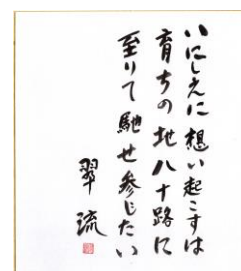 いにしえに想い起こすは
育ちの地八十路に
至りて馳せ参じたい
翠流